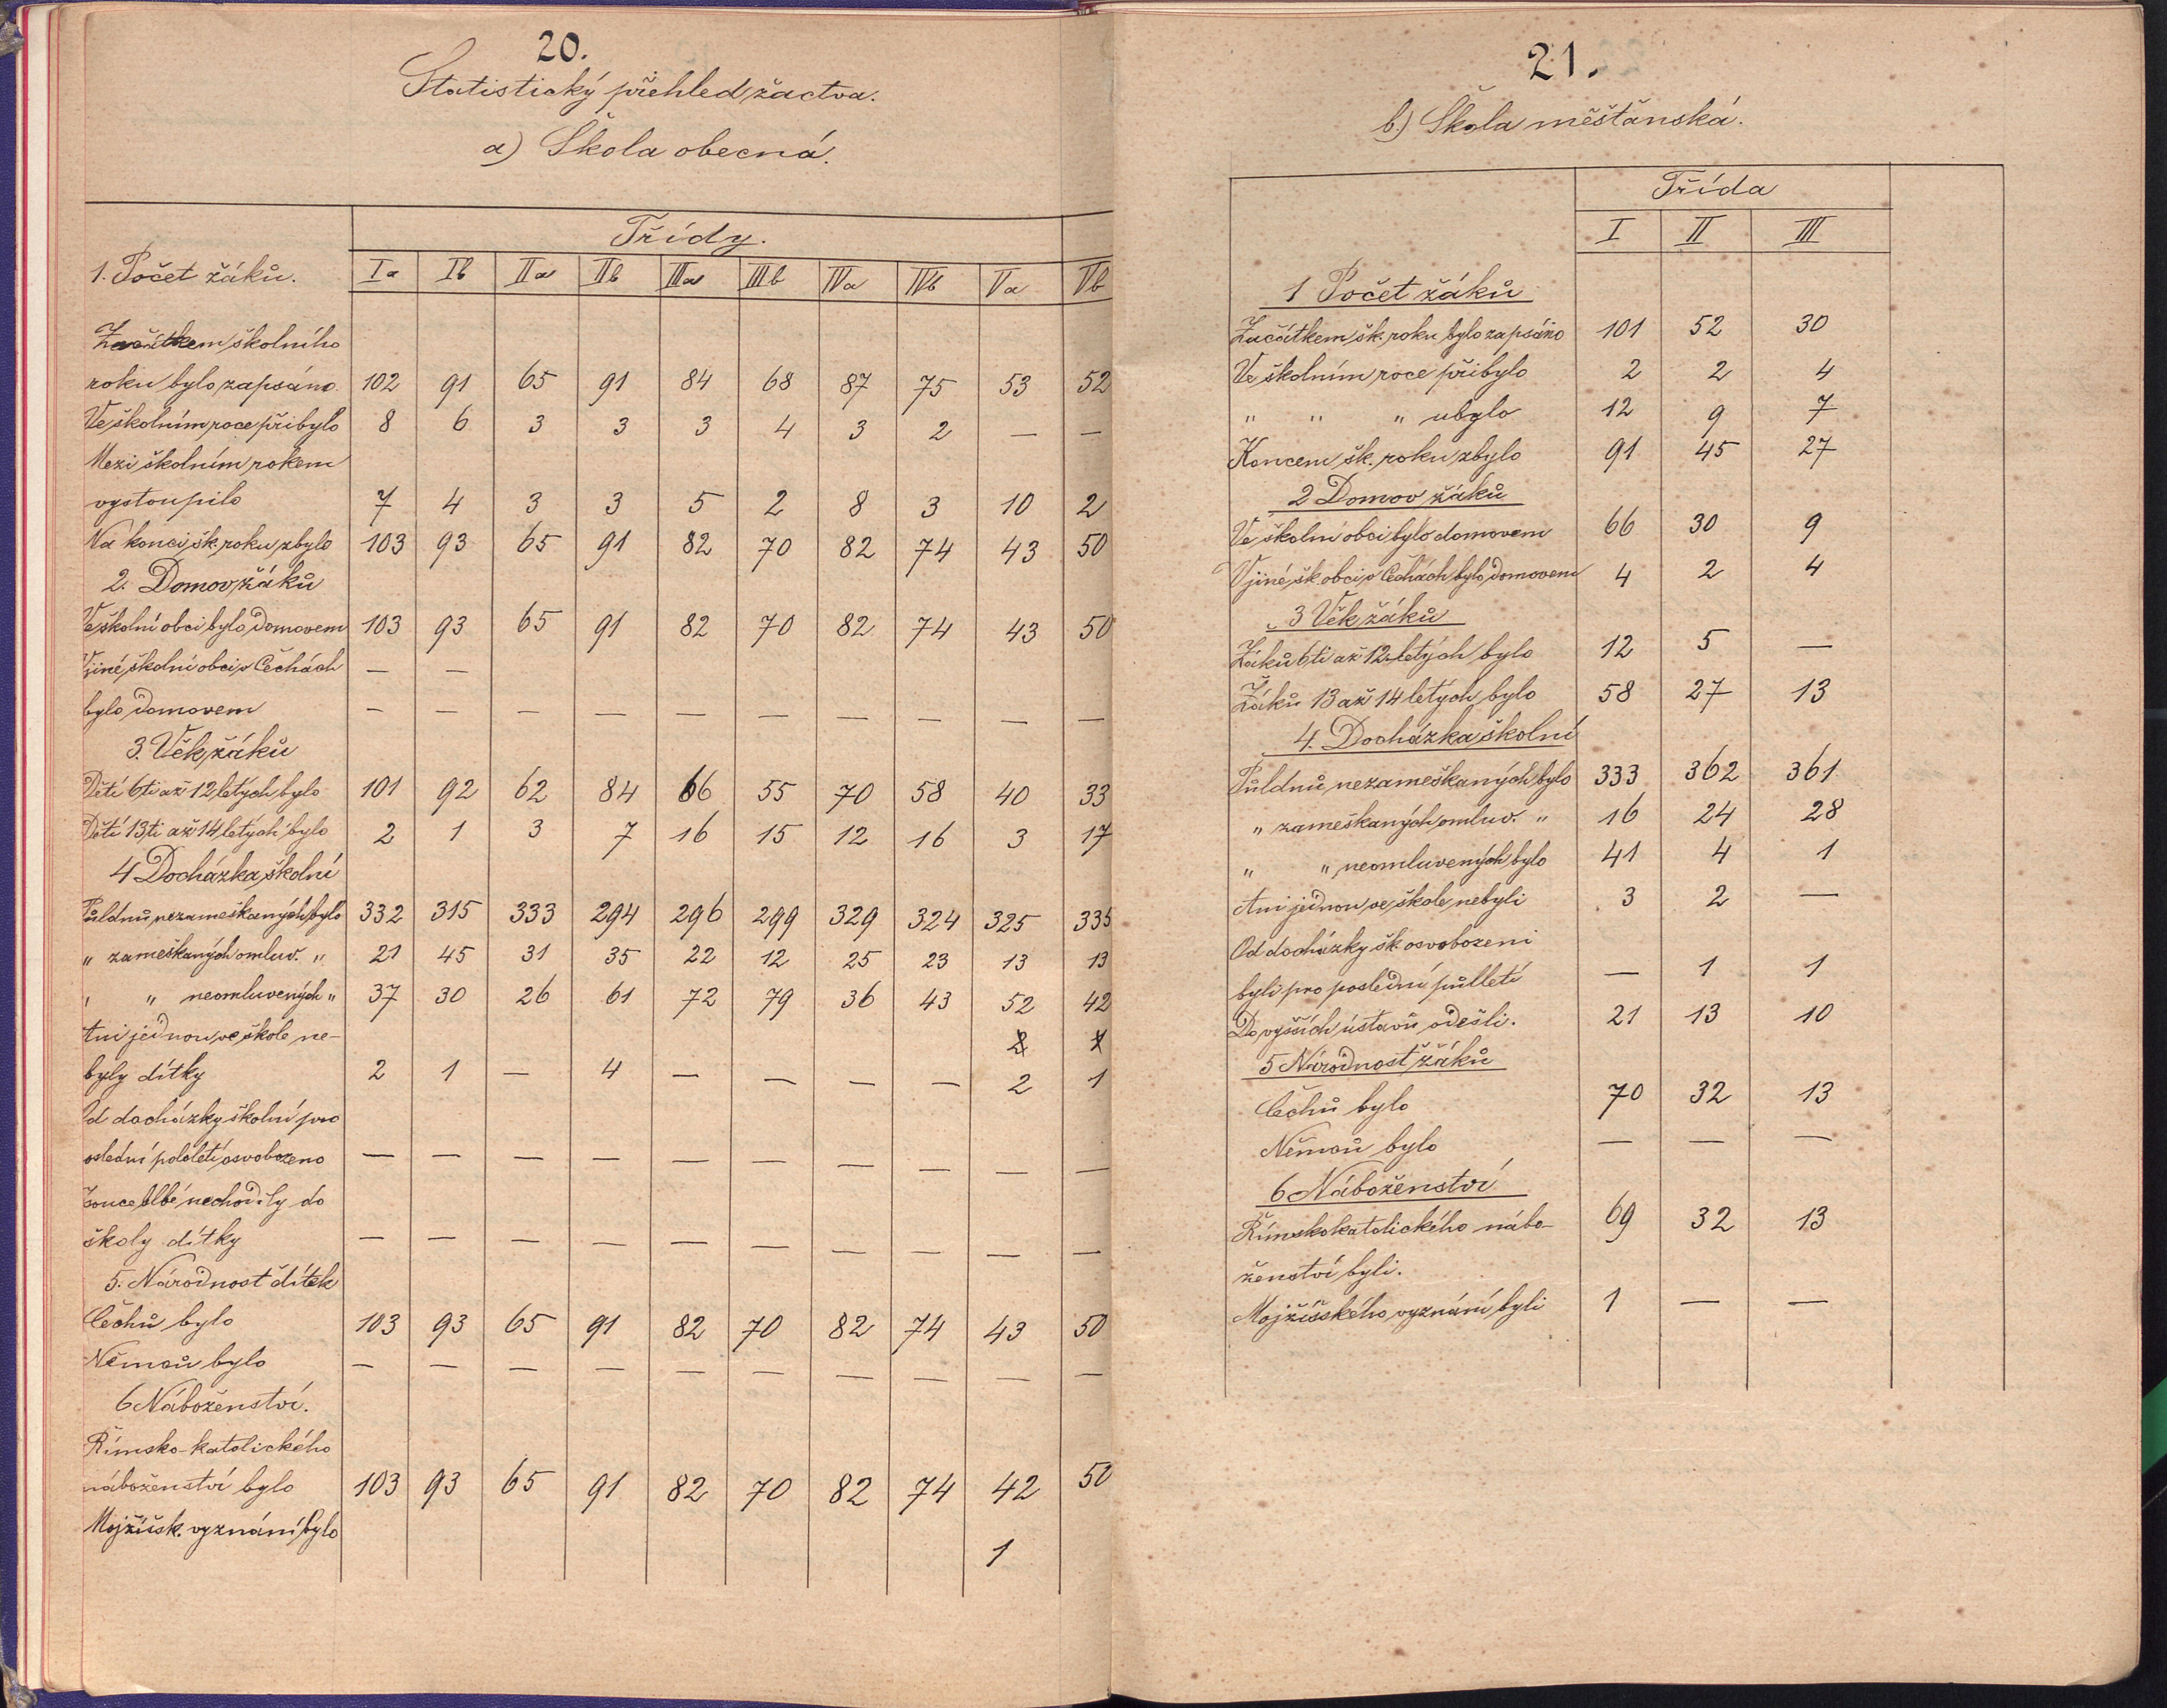 20.
Statistický přehled žactva.
a) Škola obecná.
Třídy.
1. Počet žáků. Ia Ib IIa IIb IIIa IIIb IVa IVb Va Vb
Začátkem školního
roku bylo zapsáno 102 91 65 91 84 68 87 75 53 52
Ve školním roce přibylo 8 6 3 3 3 4 3 2 — —
Mezi školním rokem
vystoupilo 7 4 3 3 5 2 8 3 10 2
Na konci šk. roku zbylo 103 93 65 91 82 70 82 74 43 50
2. Domov žáků
Ve školní obci bylo domovem 103 93 65 91 82 70 82 74 43 50
V jiné školní obci v Čechách — —
bylo domovem — — — — — — — — — —
3. Věk žáků
Dětí 6ti až 12letých bylo 101 92 62 84 66 55 70 58 40 33
Dětí 13ti až 14letých bylo 2 1 3 7 16 15 12 16 3 17
4 Docházka školní
Půldnů nezameškaných bylo 332 315 333 294 296 299 329 324 325 335
„ zameškaných omluv. „ 21 45 31 35 22 12 25 23 13 13
„ „ neomluvených „ 37 30 26 61 72 79 36 43 52 42
Ani jednou ve škole ne-
byly dítky 2 1 — 4 — — — — 2 1
Od docházky školní pro
oslední pololetí osvobozeno — — — — — — — — — —
souce blbé nechodily do
školy dítky — — — — — — — — — —
5. Národnost dítek
Čechů bylo 103 93 65 91 82 70 82 74 43 50
Němců bylo — — — — — — — — — —
6 Náboženství.
Římsko-katolického
náboženství bylo 103 93 65 91 82 70 82 74 42 50
Mojžíšsk. vyznání bylo 1
21.
b.) Škola měšťanská.
Třída
I II III
1 Počet žáků
Začátkem šk. roku bylo zapsáno 101 52 30
Ve školním roce přibylo 2 2 4
„ „ „ ubylo 12 9 7
Koncem šk. roku zbylo 91 45 27
2 Domov žáků
Ve školní obci bylo domovem 66 30 9
V jiné šk. obci v Čechách bylo domovem 4 2 4
3 Věk žáků
Žáků 6ti až 12letých bylo 12 5 —
Žáků 13 až 14letých bylo 58 27 13
4. Docházka školní
Půldnů nezameškaných bylo 333 362 361
„ zameškaných omluv. „ 16 24 28
„ „ neomluvených bylo 41 4 1
Ani jednou ve škole nebyli 3 2 —
Od docházky šk. osvobozeni
byli pro poslední půlletí — 1 1
Do vyšších ústavů odešli. 21 13 10
5 Národnost žáků
Čechů bylo 70 32 13
Němců bylo — — —
6 Náboženství
Římskokatolického nábo- 69 32 13
ženství byli.
Mojžíšského vyznání byli 1 — —